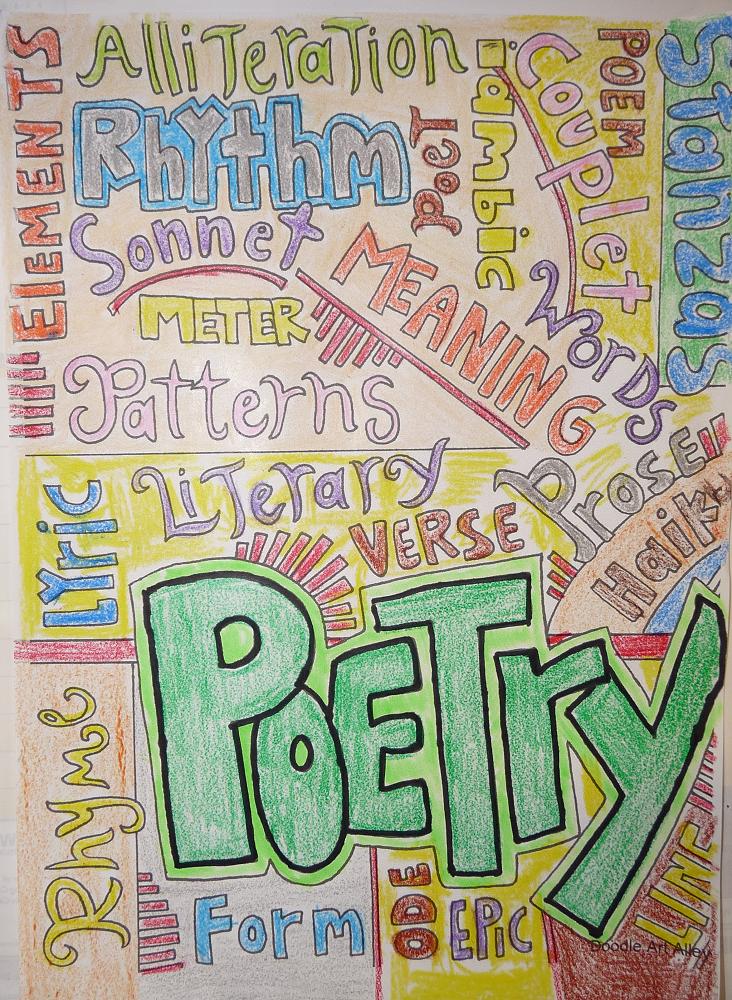 AlliTeraTion
ELEMENTS
Rhythm
Poet
iambic
Couplet
POEM
Stanzas
Sonnet
METER
MEANING
Words
Patterns
LiTerary
VERSE
Prose
Haiku
LYric
POETry
Rhyme
Form
ODE
EPiC
LINE
Doodle Art Alley